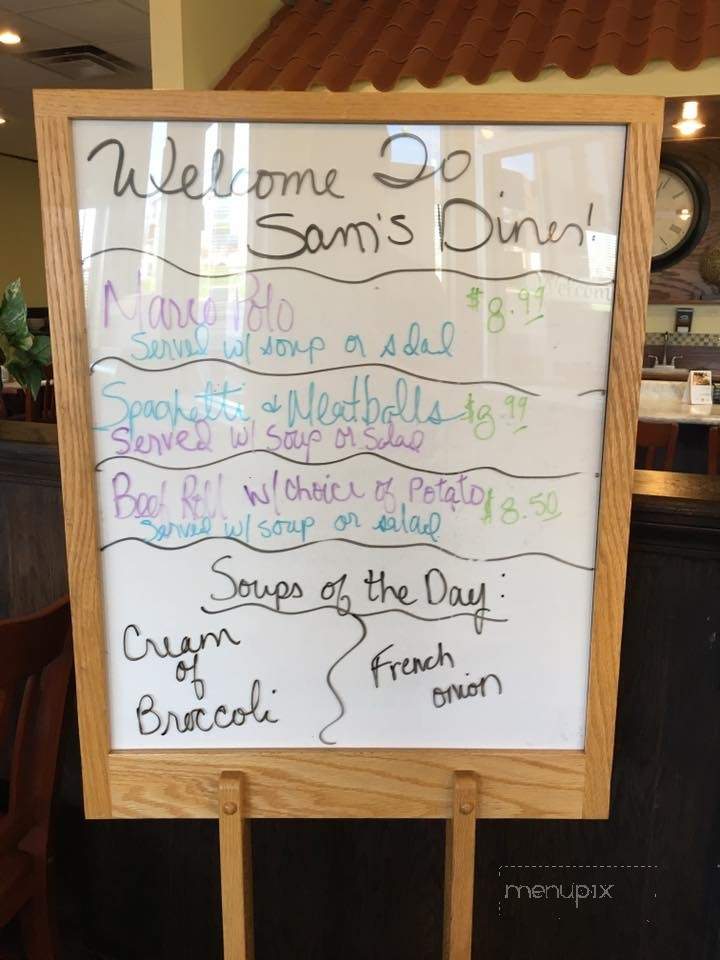 Welcome To
Sam's Diner!
Marco Polo $8.99
Served w/ soup or salad
Spaghetti & Meatballs $8.99
Served w/ Soup or Salad
Beef Roll w/ Choice of Potato $8.50
Served w/ soup or salad
Soups of the Day:
Cream
of
Broccoli
French
onion
Welcome
menupix